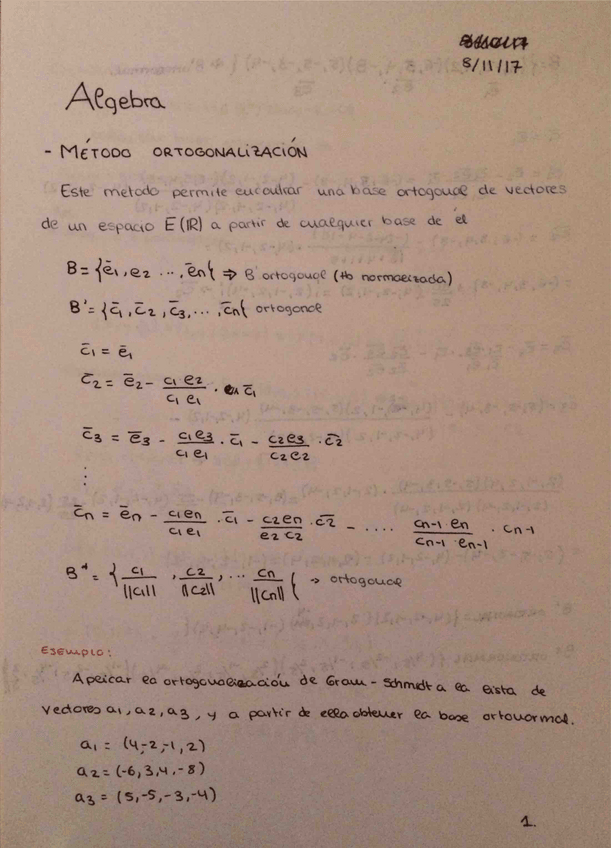 8/11/17
Algebra
- MÉTODO ORTOGONALIZACIÓN
Este metodo permite encontrar una base ortogonal de vectores
de un espacio E(IR) a partir de cualquier base de él
B = {ē1, e2 ..., ēn{ ⇒ B' ortogonal (+b normalizada)
B' = {c̄1, c̄2, c̄3, ..., c̄n{ ortogonal
c̄1 = ē1
c̄2 = ē2 - (c1 e2)/(c1 e1) · c̄1
c̄3 = ē3 - (c1e3)/(c1 e1) · c̄1 - (c2e3)/(c2 e2) · c̄2
⋮
c̄n = ēn - (c1en)/(c1 e1) · c̄1 - (c2en)/(e2 c2) · c̄2 - .... (cn-1 en)/(cn-1 · en-1) · cn-1
B" = { c1/||c1|| , c2/||c2|| , ... cn/||cn|| { → ortogonal
EJEMPLO:
Aplicar la ortogonalización de Gram-Schmidt a la lista de
vectores a1, a2, a3, y a partir de ella obtener la base ortonormal.
a1 = (4,-2,-1,2)
a2 = (-6,3,4,-8)
a3 = (5,-5,-3,-4)
1.